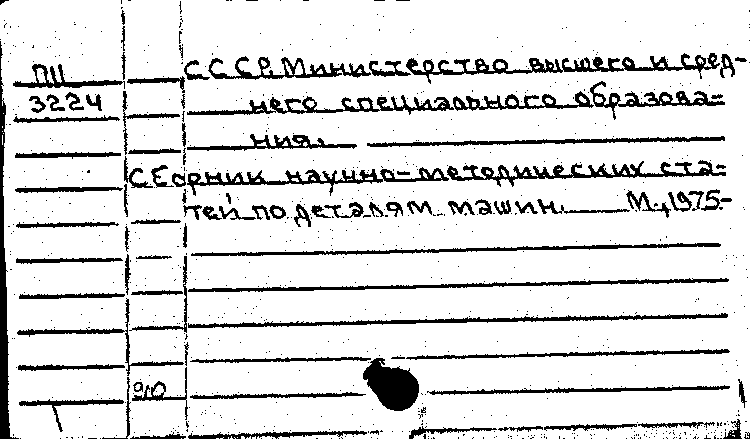 ПII СССР. Министерство высшего и сред-
3224 него специального образова=
ния.
Сборник научно-методических ста=
тей по деталям машин. М., 1975-